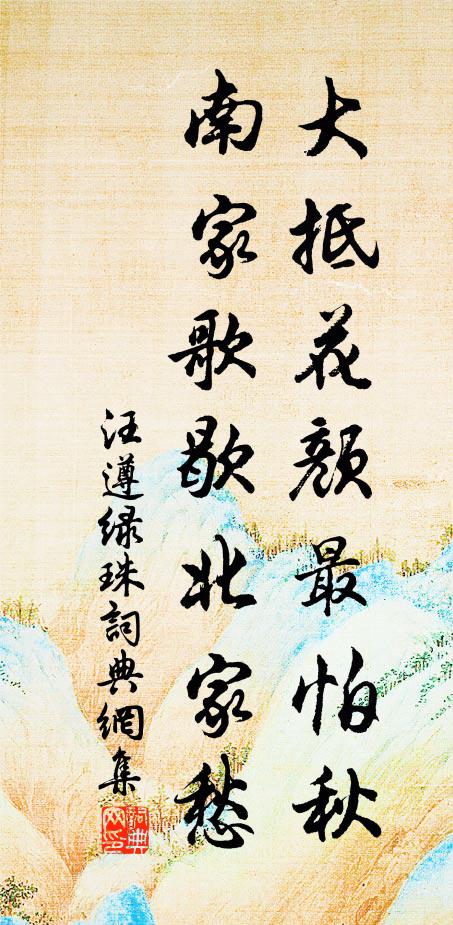 大抵花颜最怕秋
南家歌歇北家愁
汪遵绿珠詞典網集
詞典